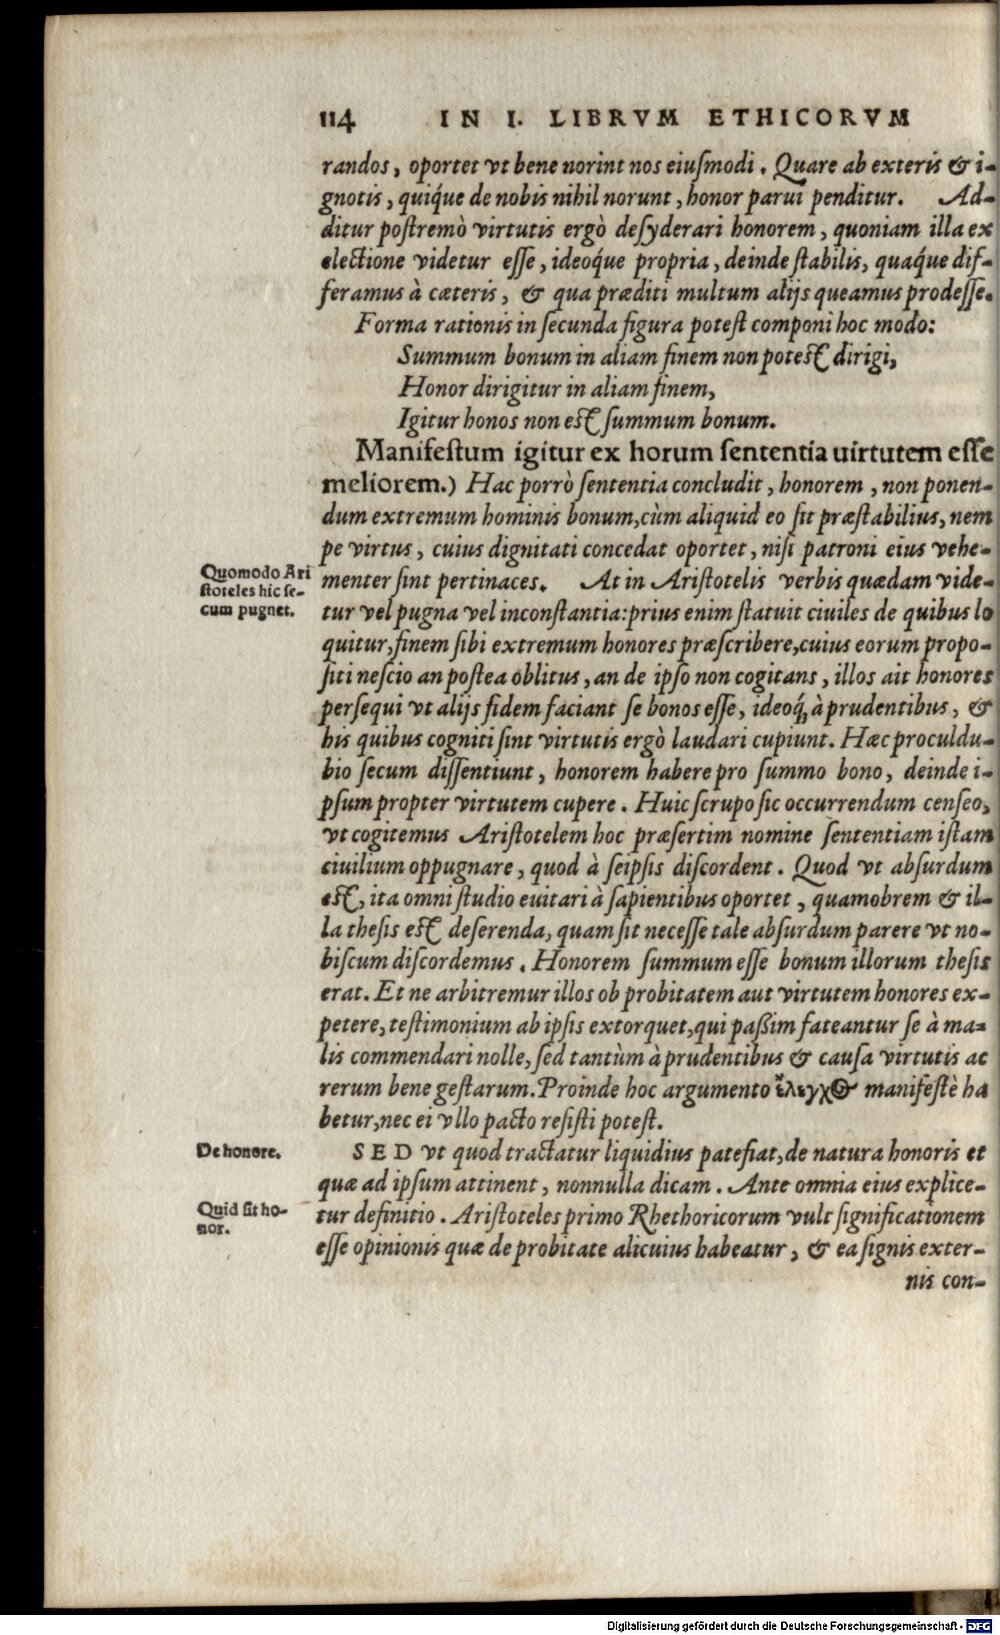 114 IN I. LIBRVM ETHICORVM
randos, oportet vt bene norint nos eiuſmodi. Quare ab exteris & i-
gnotis, quiq́ue de nobis nihil norunt, honor parui penditur. Ad-
ditur poſtremò virtutis ergò deſyderari honorem, quoniam illa ex
electione videtur eſſe, ideoq́ue propria, deinde ſtabilis, quaq́ue dif-
feramus à cæteris, & qua præditi multum alijs queamus prodeſſe.
Forma rationis in ſecunda figura poteſt componi hoc modo:
Summum bonum in aliam finem non poteſt dirigi,
Honor dirigitur in aliam finem,
Igitur honos non eſt ſummum bonum.
Manifeſtum igitur ex horum ſententia uirtutem eſſe
meliorem.) Hac porrò ſententia concludit, honorem, non ponen-
dum extremum hominis bonum, cùm aliquid eo ſit præſtabilius, nem
pe virtus, cuius dignitati concedat oportet, niſi patroni eius vehe-
Quomodo Ari
ſtoteles hic ſe-
cum pugnet.
menter ſint pertinaces. At in Ariſtotelis verbis quædam vide-
tur vel pugna vel inconſtantia: prius enim ſtatuit ciuiles de quibus lo
quitur, finem ſibi extremum honores præſcribere, cuius eorum propo-
ſiti neſcio an poſtea oblitus, an de ipſo non cogitans, illos ait honores
perſequi vt alijs fidem faciant ſe bonos eſſe, ideoq́; à prudentibus, &
his quibus cogniti ſint virtutis ergò laudari cupiunt. Hæc proculdu-
bio ſecum diſſentiunt, honorem habere pro ſummo bono, deinde i-
pſum propter virtutem cupere. Huic ſcrupo ſic occurrendum cenſeo,
vt cogitemus Ariſtotelem hoc præſertim nomine ſententiam iſtam
ciuilium oppugnare, quod à ſeipſis diſcordent. Quod vt abſurdum
eſt, ita omni ſtudio euitari à ſapientibus oportet, quamobrem & il-
la theſis eſt deſerenda, quam ſit neceſſe tale abſurdum parere vt no-
biſcum diſcordemus. Honorem ſummum eſſe bonum illorum theſis
erat. Et ne arbitremur illos ob probitatem aut virtutem honores ex-
petere, teſtimonium ab ipſis extorquet, qui paßim fateantur ſe à ma-
lis commendari nolle, ſed tantùm à prudentibus & cauſa virtutis ac
rerum bene geſtarum. Proinde hoc argumento ἔλεγχος manifeſtè ha
betur, nec ei vllo pacto reſiſti poteſt.
De honore.
SED vt quod tractatur liquidius patefiat, de natura honoris et
quæ ad ipſum attinent, nonnulla dicam. Ante omnia eius explice-
Quid ſit ho-
nor.
tur definitio. Ariſtoteles primo Rhethoricorum vult ſignificationem
eſſe opinionis quæ de probitate alicuius habeatur, & ea ſignis exter-
nis con-
Digitalisierung gefördert durch die Deutsche Forschungsgemeinschaft - DFG